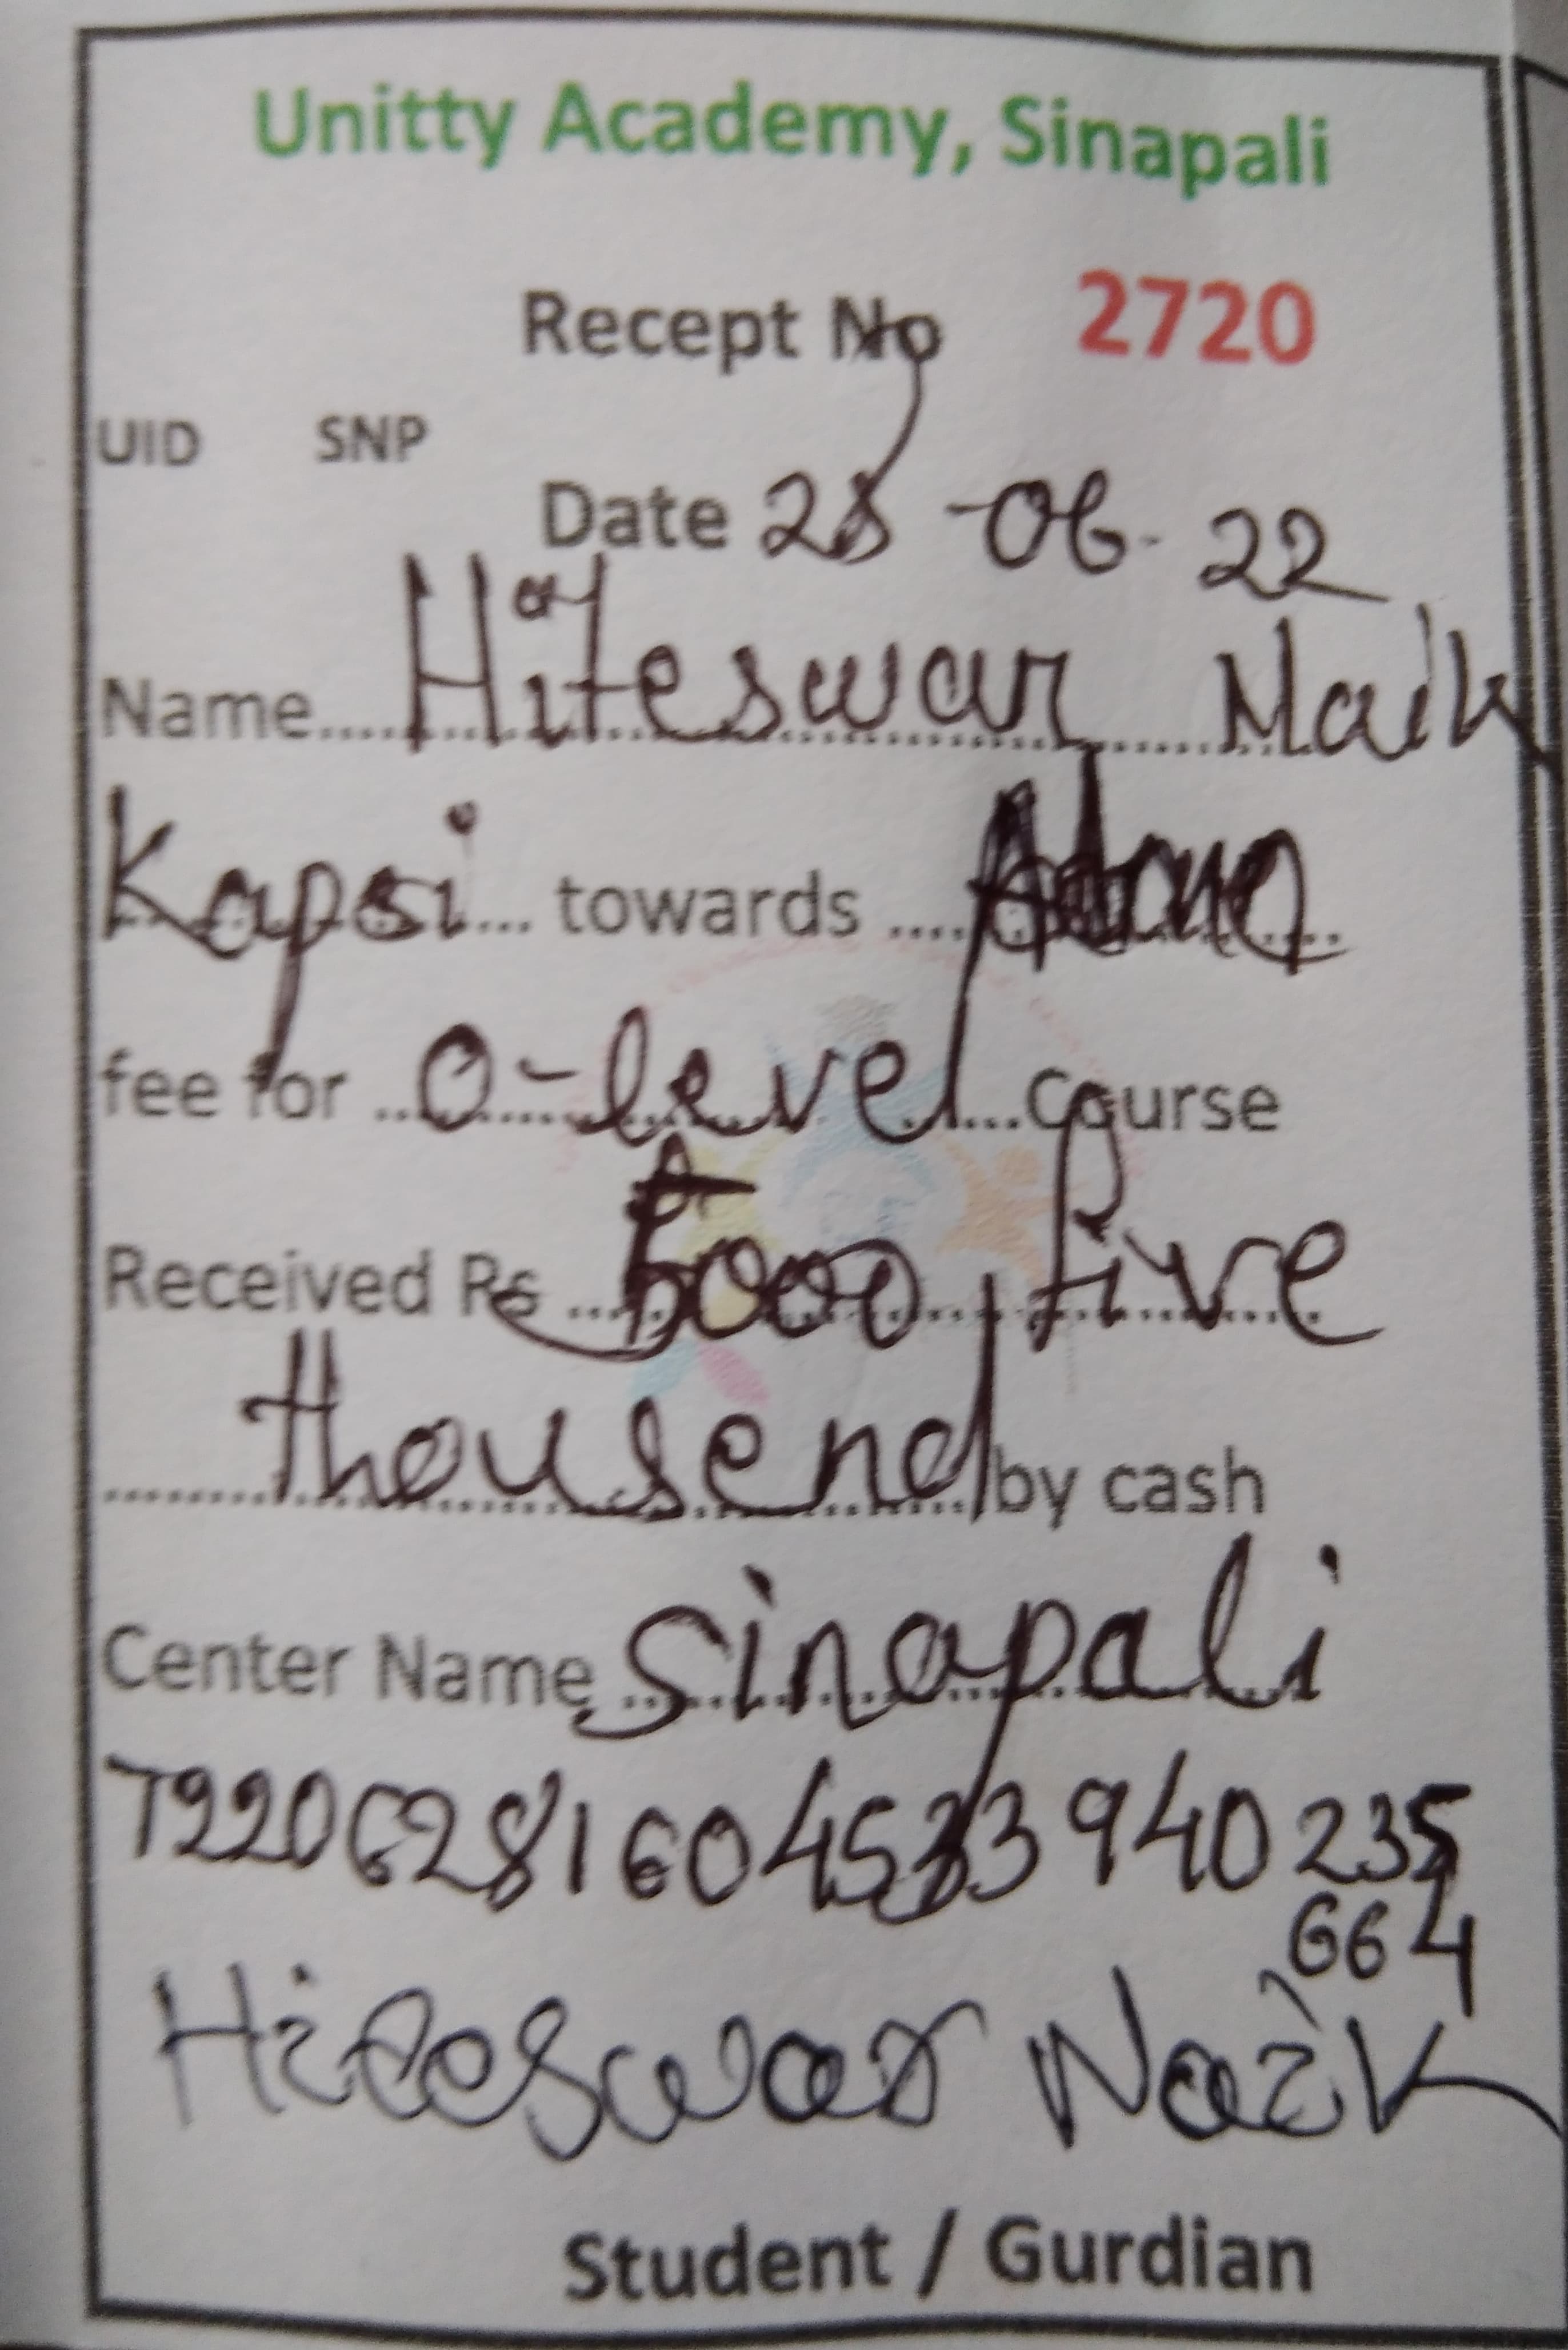 Unitty Academy, Sinapali
Recept No 2720
UID SNP
Date 28-06-22
Name.... Hiteswar Naik
Kapsi... towards ....
fee for ... O-level ... Course
Received Rs ... 5000, five
thousend by cash
Center Name ... Sinapali
T2206281604533940235
664
Hiteswar Naik
Student / Gurdian